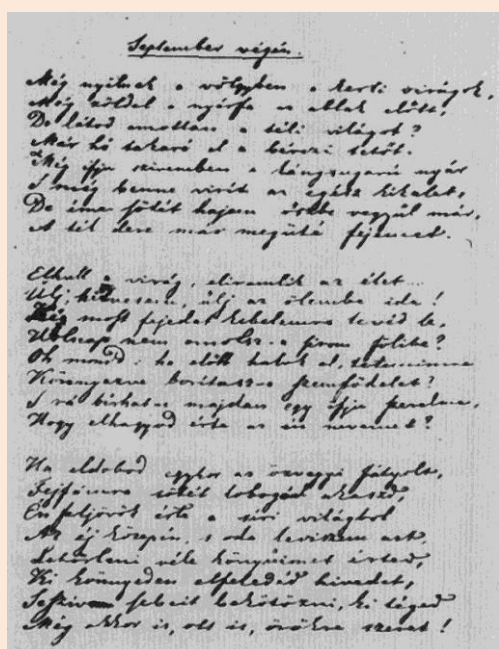 September végén.
Még nyilnak a völgyben a kerti virágok,
Még zöldel a nyárfa az ablak előtt,
De látod amottan a téli világot?
Már hó takará el a bérczi tetőt.
Még ifju szivemben a lángsugarú nyár
S még benne virít az egész kikelet,
De íme sötét hajam őszbe vegyűl már,
A tél dere már megüté fejemet.
Elhull a virág, eliramlik az élet...
Ülj, hitvesem, ülj az ölembe ide!
Ki most fejedet kebelemre tevéd le,
Holnap nem omolsz-e sirom fölibe?
Oh mondd: ha előbb halok el, tetemimre
Könnyezve borítasz-e szemfödelet?
S rá bírhat-e majdan egy ifju szerelme,
Hogy elhagyod érte az én nevemet?
Ha eldobod egykor az özvegyi fátyolt,
Fejfámra sötét lobogóul akaszd,
Én feljövök érte a síri világból
Az éj közepén, s oda leviszem azt,
Letörleni véle könyűimet érted,
Ki könnyeden elfeledéd hivedet,
S e sziv sebeit bekötözni, ki téged
Még ekkor is, ott is, örökre szeret!